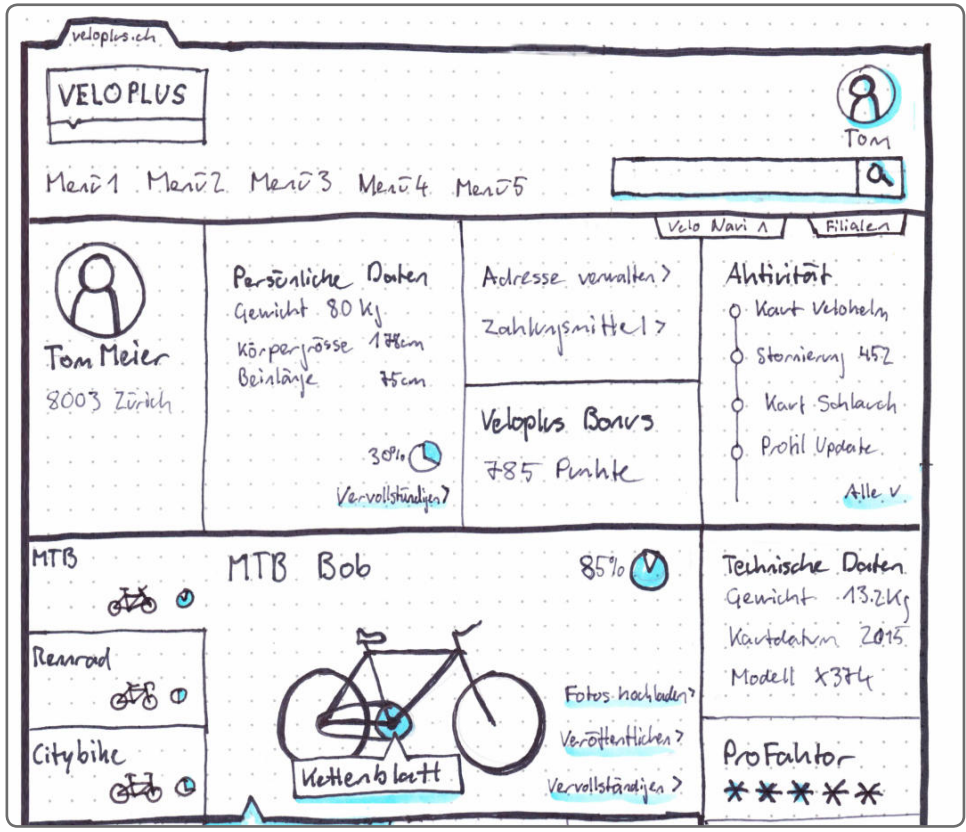 veloplus.ch
VELOPLUS
Tom
Menü 1 Menü 2 Menü 3 Menü 4 Menü 5
Velo Navi ∧ Filialen
Tom Meier
8003 Zürich
Persönliche Daten
Gewicht 80 Kg
Körpergrösse 178cm
Beinlänge 75cm
30%
Vervollständigen >
Adresse verwalten >
Zahlungsmittel >
Veloplus Bonus
785 Punkte
Aktivität
Kauf Velohelm
Stornierung 452
Kauf Schlauch
Profil Update
Alle ∨
MTB
Rennrad
Citybike
MTB Bob
85%
Fotos hochladen >
Veröffentlichen >
Vervollständigen >
Kettenblatt
Technische Daten
Gewicht 13.2Kg
Kaufdatum 2015
Modell X374
ProFaktor
* * * * *